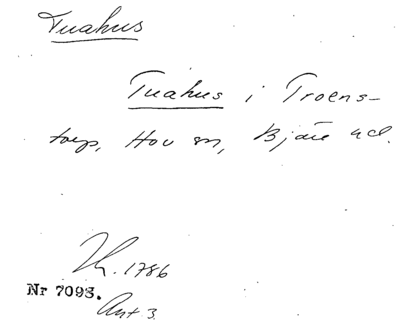 Tuahus
Tuahus i Troens-
torp, Hov sn, Bjäre hd.
1786
Nr 7093.
Ant 3.